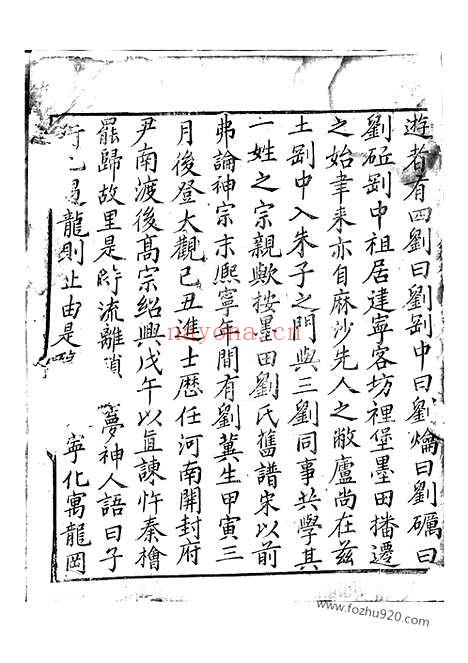 遊者有四劉曰劉剛中曰劉爚曰劉礪曰
劉砥剛中祖居建寧客坊裡堡墨田播遷
之始聿来亦自麻沙先人之敝廬尚在茲
土剛中入朱子之門與三劉同事共學其
一姓之宗親歟按墨田劉氏舊譜宋以前
弗論神宗末熙寧年間有劉蓂生甲寅三
月後登大觀己丑進士歷任河南開封府
尹南渡後髙宗紹興戊午以直諫忤秦檜
罷歸故里是時流離瑣 夢神人語曰子
龍則止由是 寧化寓龍岡
nayona.cn
www.fozhu920.com